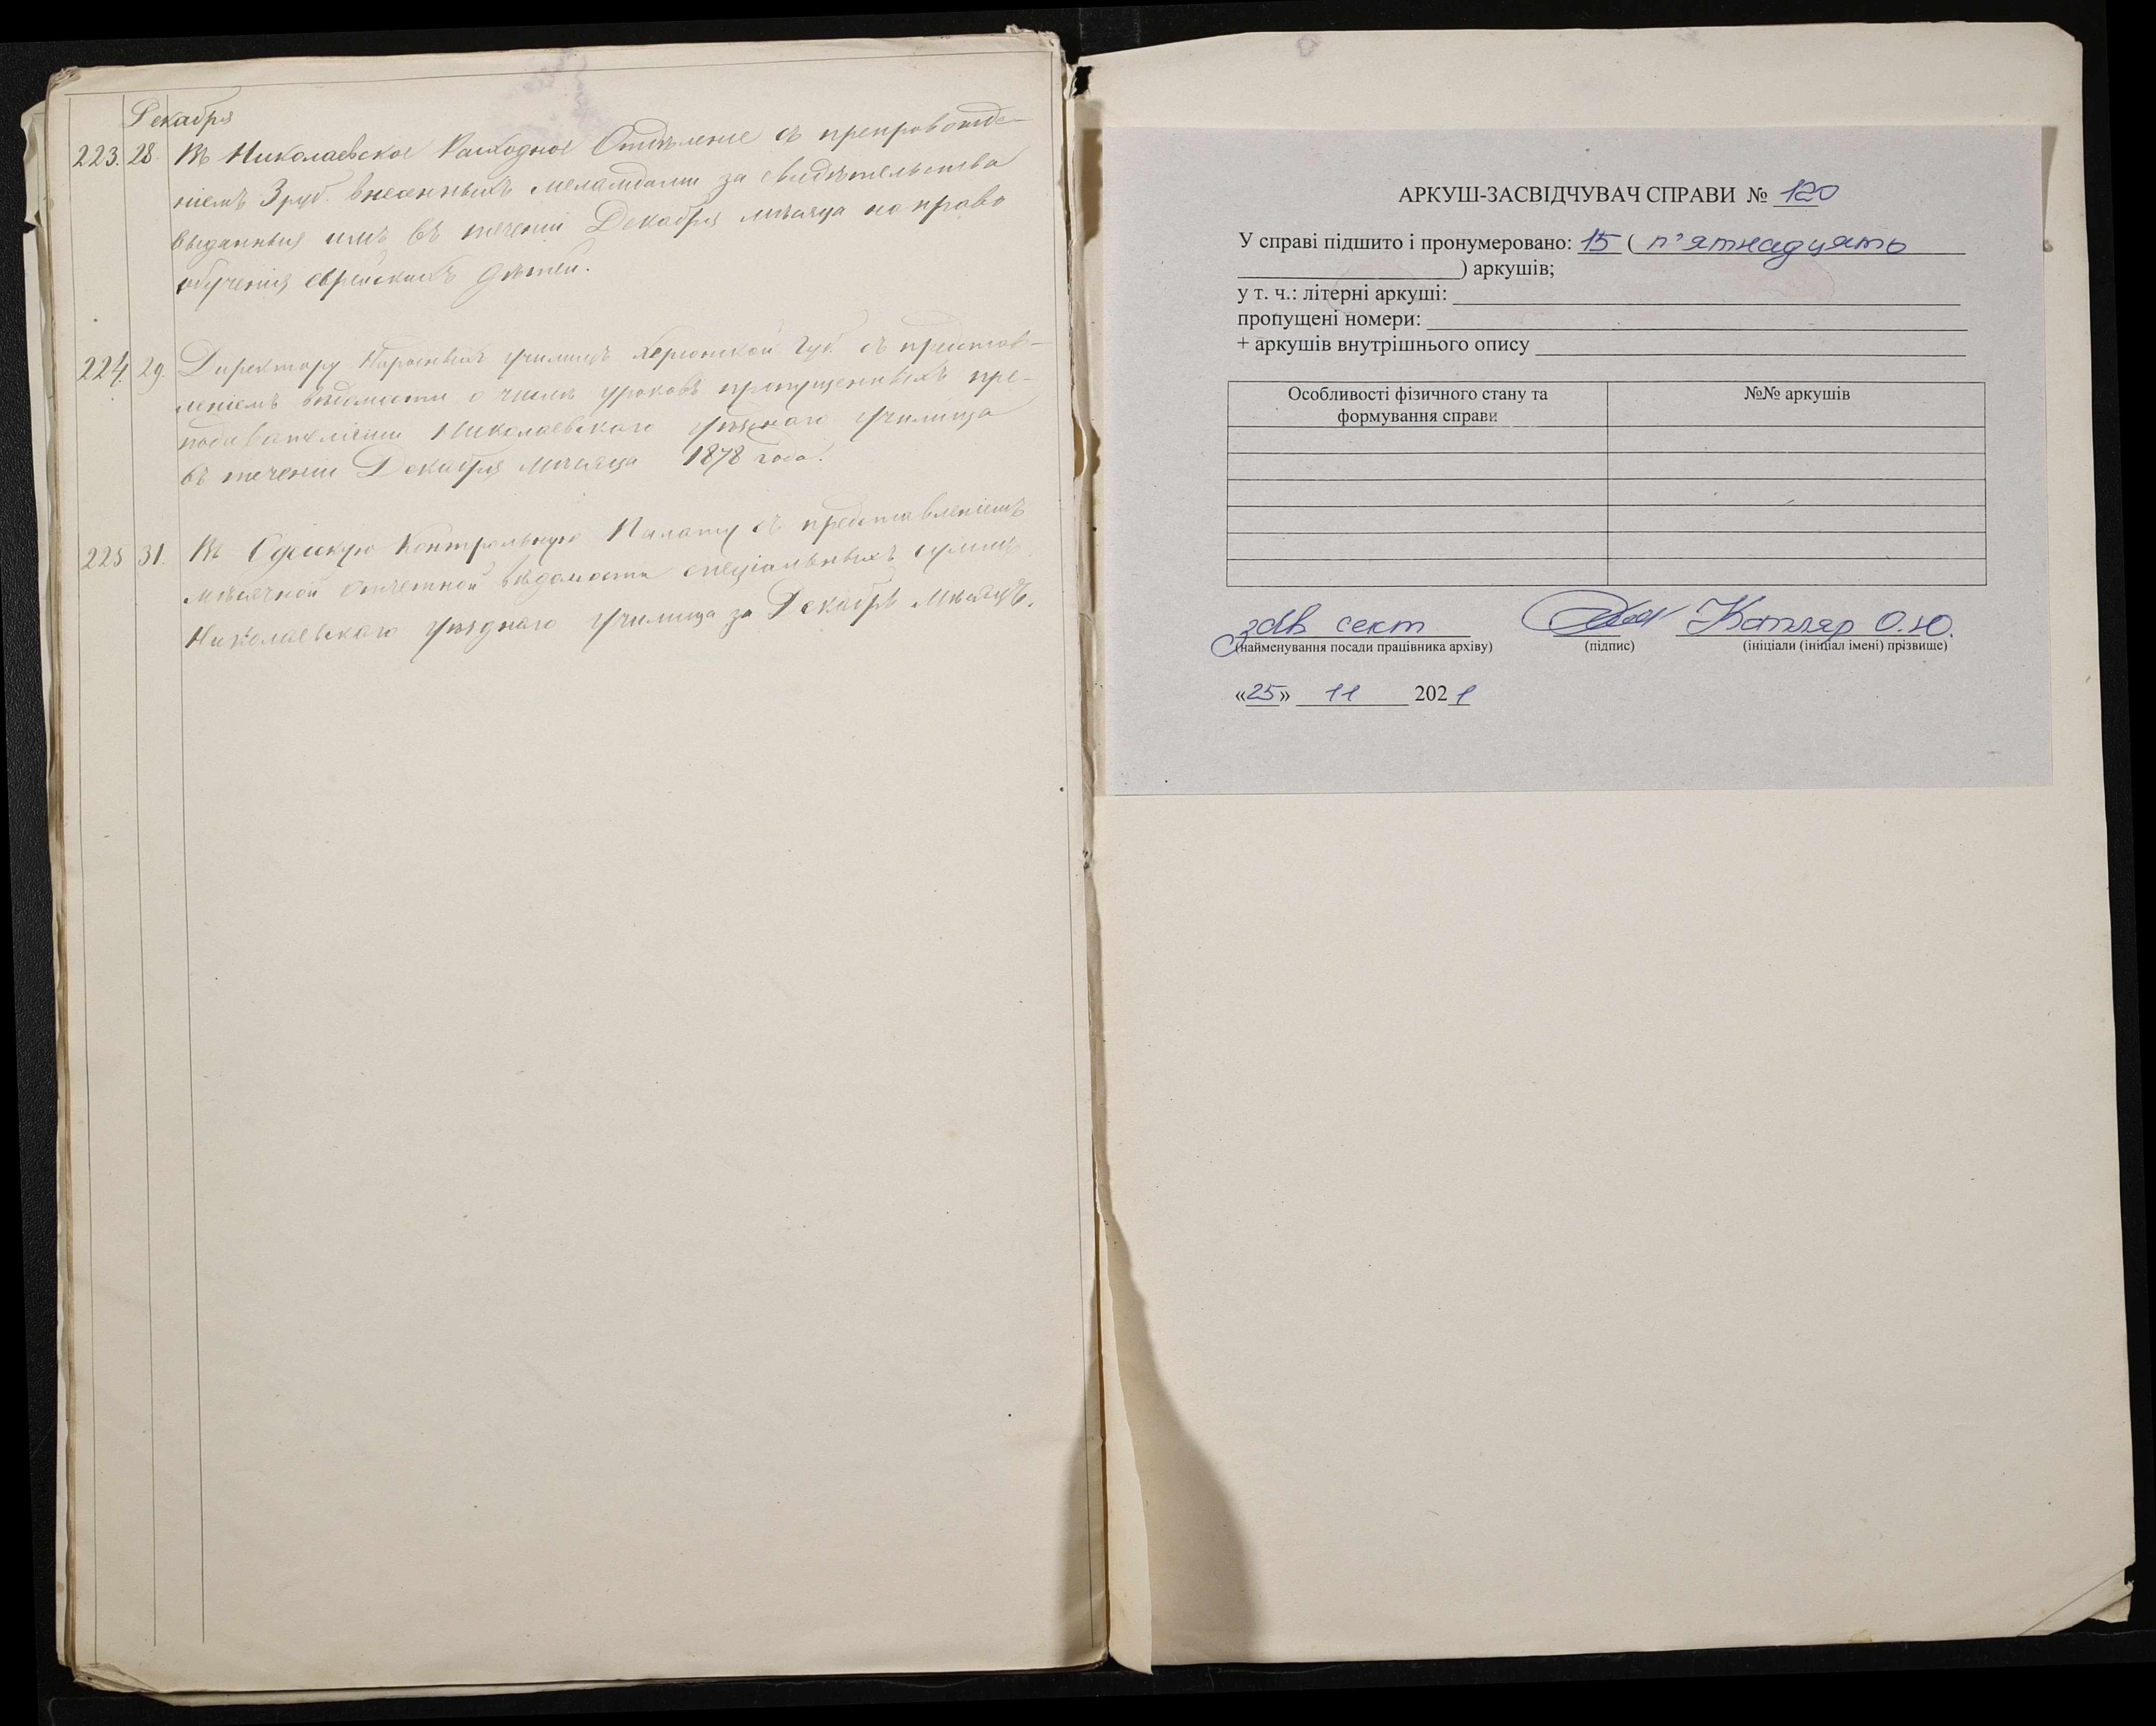 Декабря
223. 28. Въ Николаевское Расходное Отдѣленіе съ препровожде-
ніемъ 3 руб. внесенныхъ меламдами за свидѣтельства
выданныя имъ въ теченіи Декабря мѣсяца на право
обученія еврейскихъ дѣтей.
224. 29. Директору Народныхъ училищъ Херсонской Губ. съ представ-
леніемъ вѣдомости о числѣ уроковъ пропущенныхъ пре-
подавателями Николаевскаго уѣзднаго училища
въ теченіи Декабря мѣсяца 1878 года.
225 31. Въ Одесскую Контрольную Палату съ представленіемъ
мѣсячной отчетной вѣдомости спеціальныхъ суммъ
Николаевскаго уѣзднаго училища за Декабрь мѣсяцъ.
АРКУШ-ЗАСВІДЧУВАЧ СПРАВИ № 120
У справі підшито і пронумеровано: 15 ( п'ятнадцять
) аркушів;
у т. ч.: літерні аркуші:
пропущені номери:
+ аркушів внутрішнього опису
Особливості фізичного стану та формування справи
№№ аркушів
зав сект Котляр О.Ю.
(найменування посади працівника архіву) (підпис) (ініціали (ініціал імені) прізвище)
«25» 11 2021